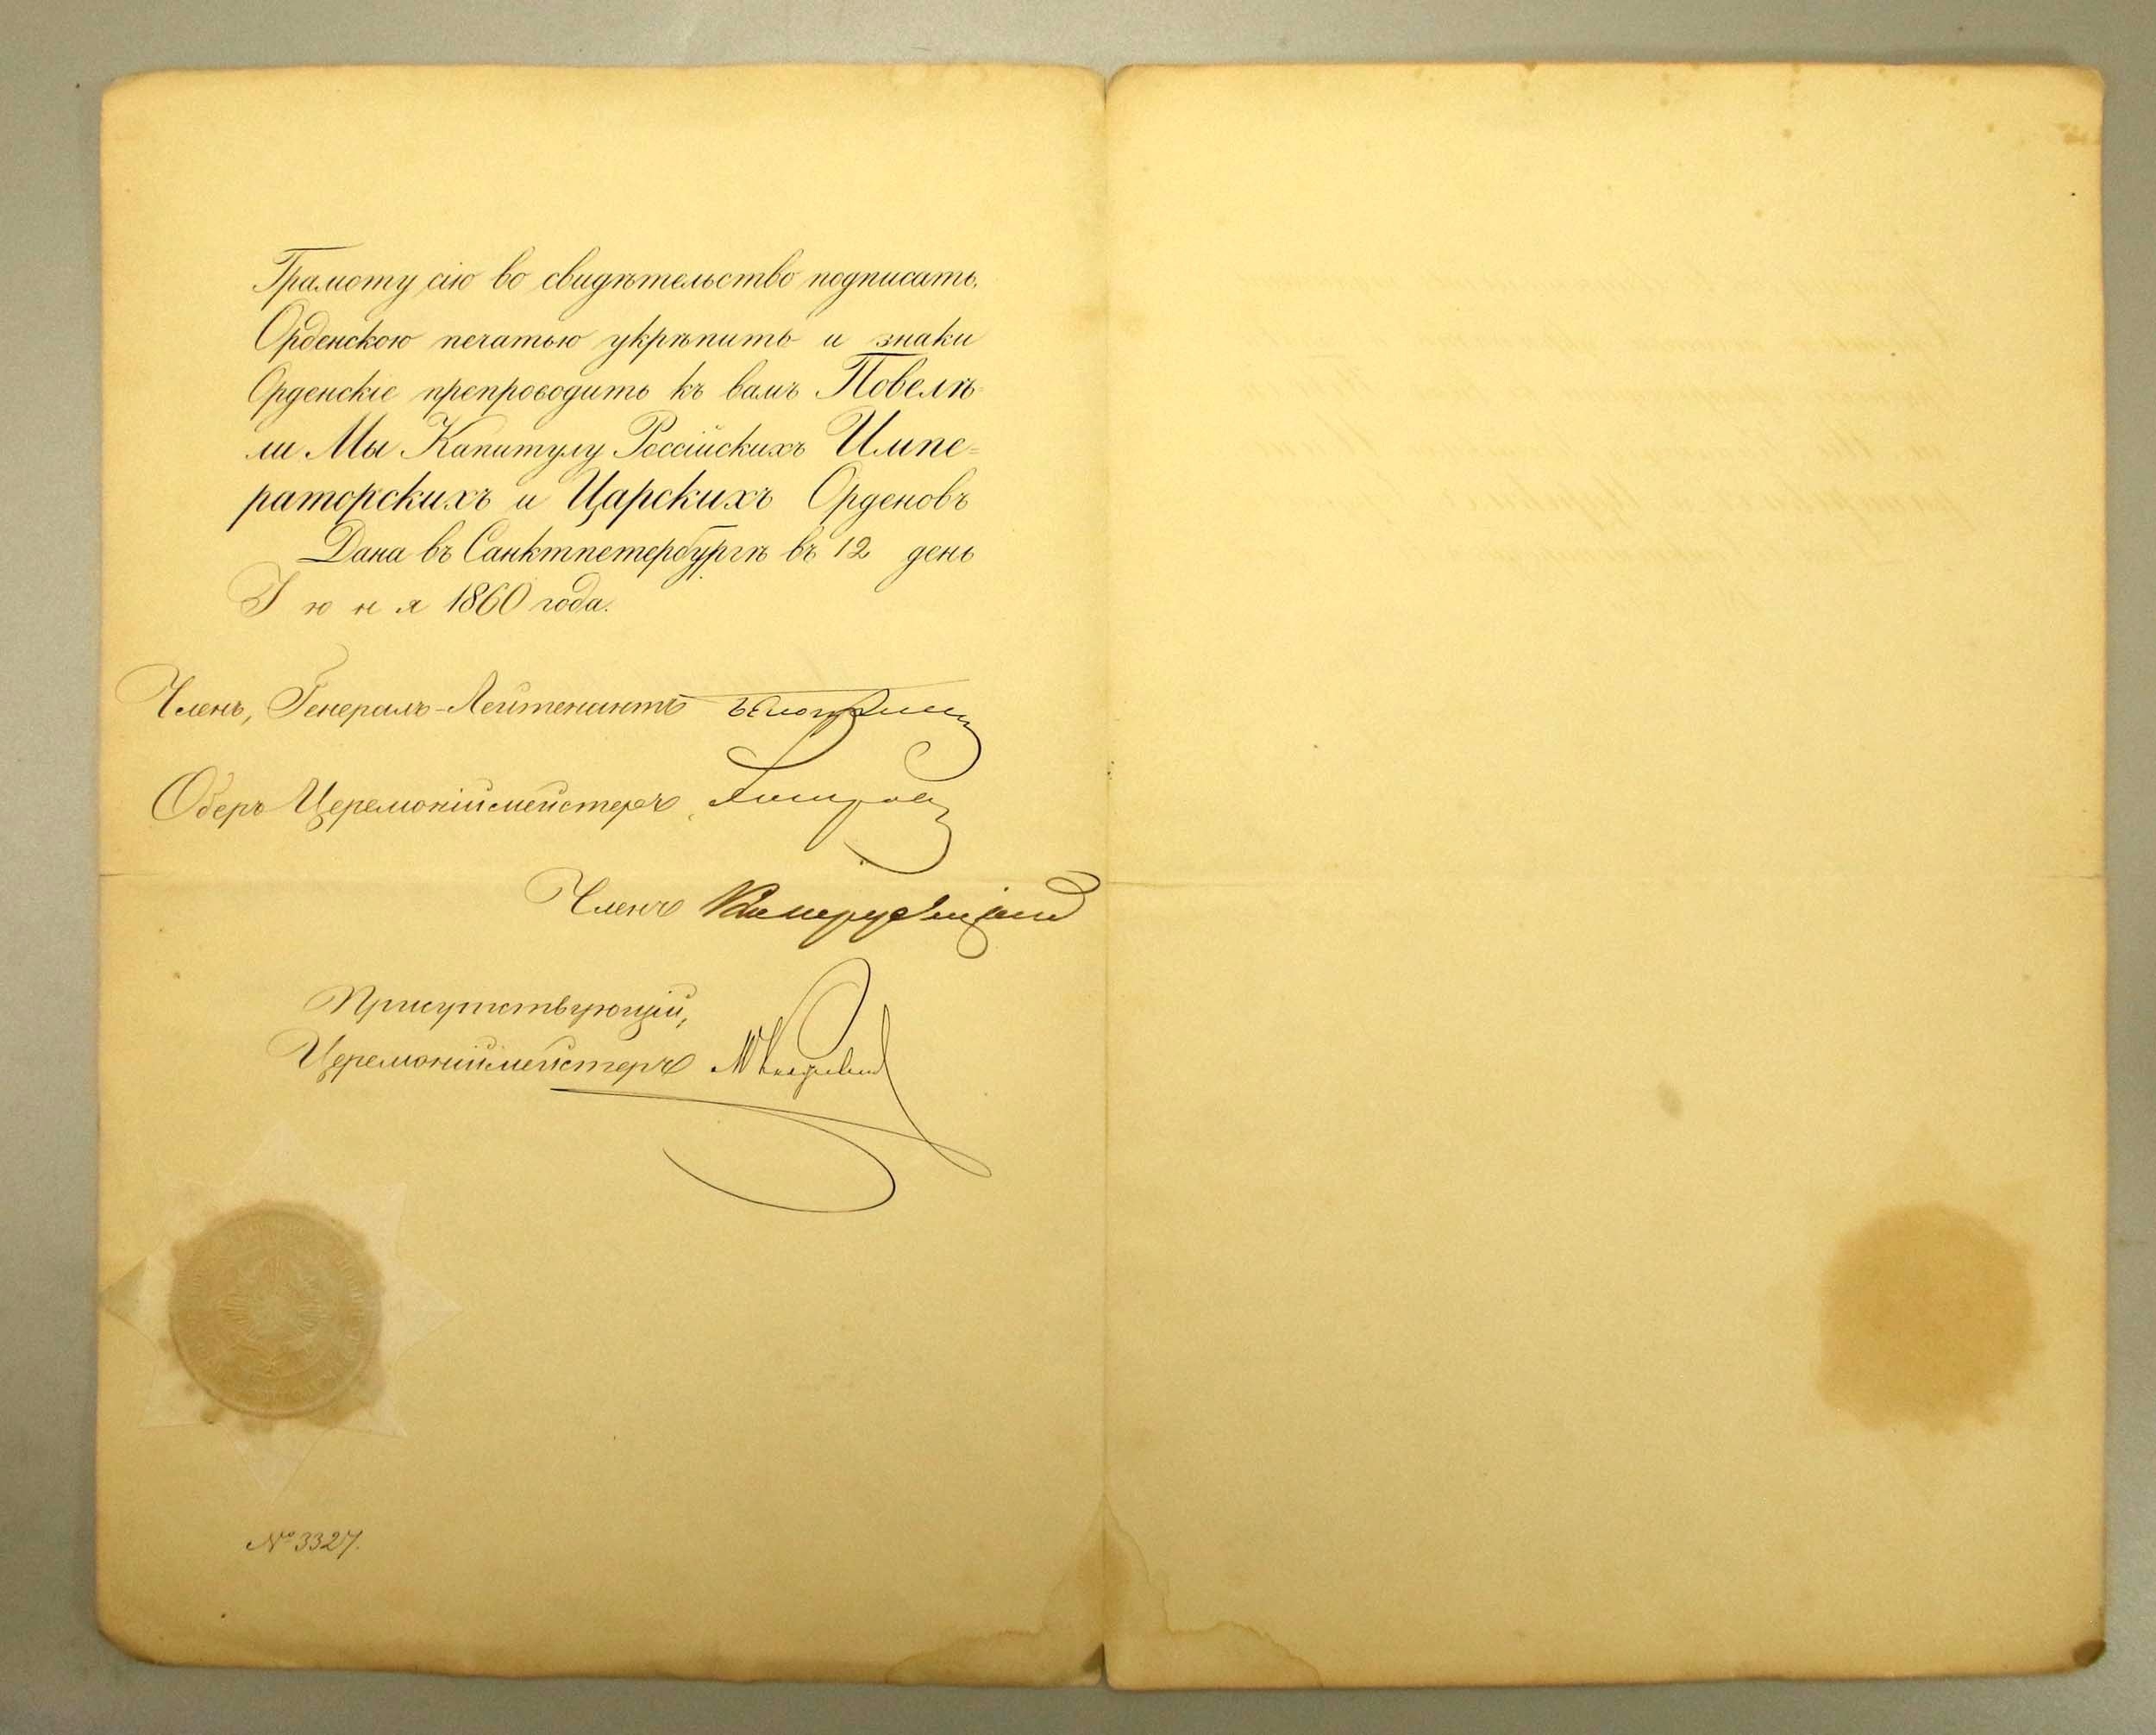 Грамоту сію во свидѣтельство подписать,
Орденскою печатью укрѣпить и знаки
Орденскіе препроводить къ вамъ Повелѣ-
ли Мы Капитулу Россійскихъ Импе-
раторскихъ и Царскихъ Орденовъ
Дана въ Санктпетербургѣ въ 12 день
Іюня 1860 года.
Членъ, Генералъ-Лейтенантъ
Оберъ Церемоніймейстеръ,
Членъ
Присутствующій,
Церемоніймейстеръ
№ 3327.